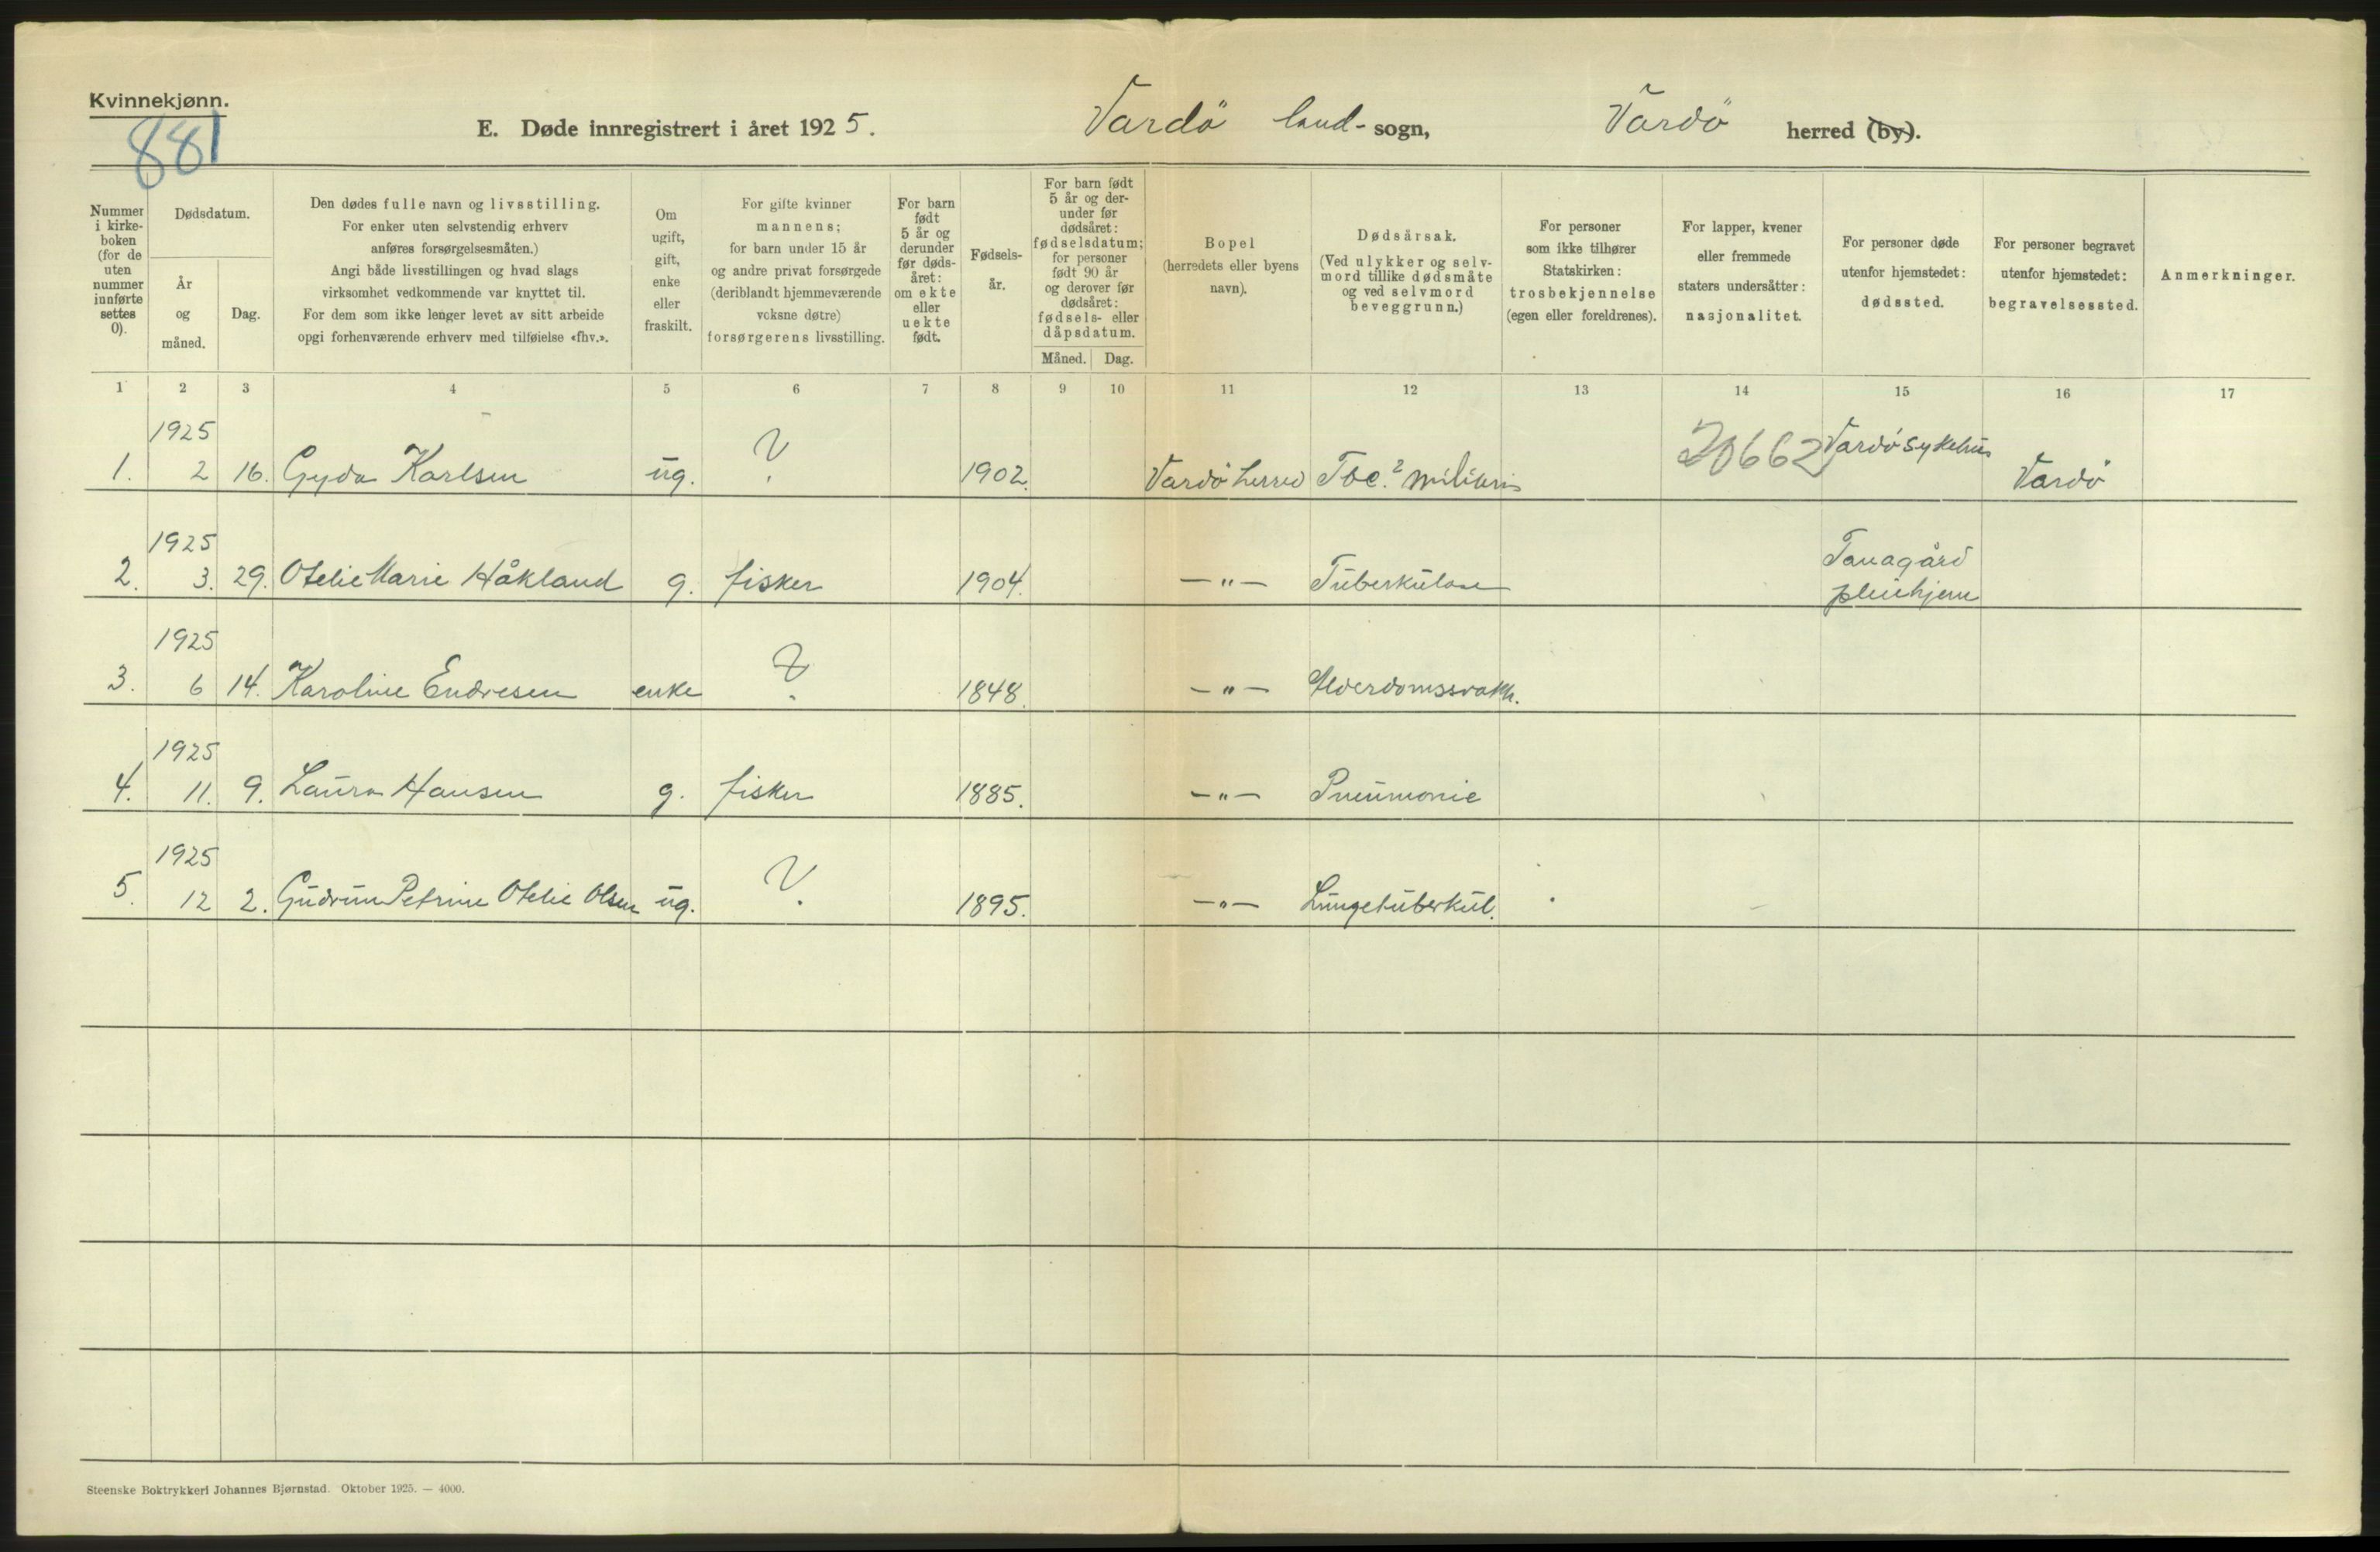 Kvinnekjønn.
881
E. Døde innregistrert i året 1925. Vardö land-sogn, Vardö herred (by).
Nummer i kirke-boken (for de uten nummer innførte settes 0).
Dødsdatum.
År og måned.
Dag.
Den dødes fulle navn og livsstilling.
For enker uten selvstendig erhverv
anføres forsørgelsesmåten.)
Angi både livsstillingen og hvad slags
virksomhet vedkommende var knyttet til.
For dem som ikke lenger levet av sitt arbeide
opgi forhenværende erhverv med tilføielse «fhv.».
Om ugift, gift, enke eller fraskilt.
For gifte kvinner
mannens;
for barn under 15 år
og andre privat forsørgede
(deriblandt hjemmeværende
voksne døtre)
forsørgerens livsstilling.
For barn født 5 år og derunder før døds-året: om ekte eller uekte født.
Fødsels-år.
For barn født
5 år og der-
under før
dødsåret:
fødselsdatum;
for personer
født 90 år
og derover før
dødsåret:
fødsels- eller
dåpsdatum.
Måned. Dag.
Bopel
(herredets eller byens
navn).
Dødsårsak.
(Ved ulykker og selv-
mord tillike dødsmåte
og ved selvmord
beveggrunn.)
For personer
som ikke tilhører
Statskirken:
trosbekjennelse
(egen eller foreldrenes).
For lapper, kvener
eller fremmede
staters undersåtter:
nasjonalitet.
For personer døde
utenfor hjemstedet:
dødssted.
For personer begravet
utenfor hjemstedet:
begravelsessted.
Anmerkninger.
1 2 3 4 5 6 7 8 9 10 11 12 13 14 15 16 17
1925
1. 2 16. Gyda Karlsen ug. ? 1902. Vardö herred Tbc. ? miliaris 20662 Vardö sykehus Vardö
1925
2. 3. 29. Otelie Marie Håkland g. fisker 1904. —"— Tuberkulose Tanagård
pleiehjem
1925
3. 6 14. Karoline Endresen enke ? 1848. —"— Alderdomssvakh.
1925
4. 11. 9. Laura Hansen g. fisker 1885. —"— Pneumonie
1925
5. 12 2. Gudrun Petrine Otelie Olsen ug. ? 1895. —"— Lungetuberkul.
Steenske Boktrykkeri Johannes Bjørnstad. Oktober 1925. — 4000.